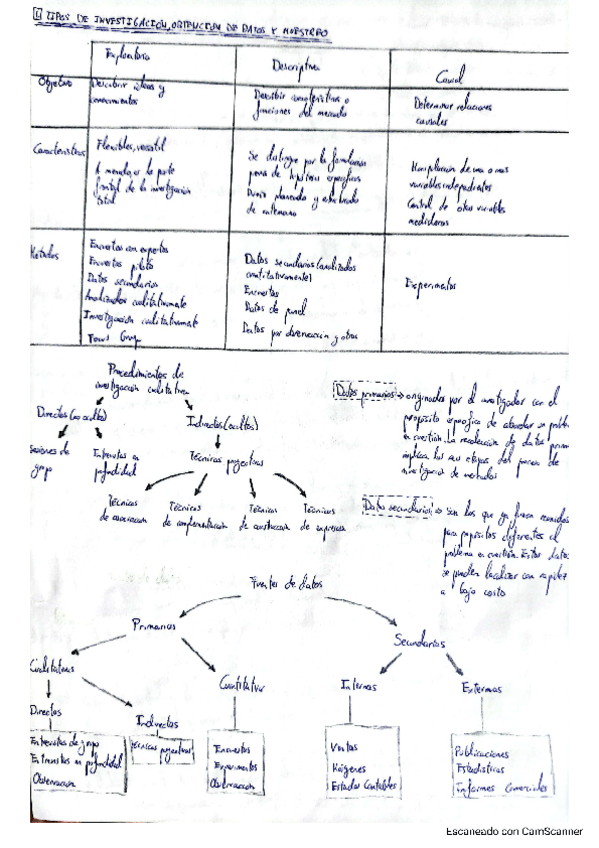 1. TIPOS DE INVESTIGACIÓN, OBTENCIÓN DE DATOS Y MUESTREO
Exploratoria
Descriptiva
Causal
Objetivo
Descubrir ideas y
conocimientos
Describir características o
funciones del mercado
Determinar relaciones
causales
Características
Flexibles, versátil
A menudo, es la parte
frontal de la investigación
total
Se distingue por la formulación
previa de hipótesis específicas
Diseño planeado y estructurado
de antemano
Manipulación de una o más
variables independientes
Control de otras variables
mediadoras
Métodos
Encuestas con expertos
Encuestas piloto
Datos secundarios
Analizados cualitativamente
Investigación cualitativamente
Datos secundarios (analizados
cuantitativamente)
Encuestas
Datos de panel
Datos por observación y otros
Experimentos
Procedimientos de
investigación cualitativa
Directos (no ocultos)
Indirectos (ocultos)
sesiones de
grupo
Entrevistas en
profundidad
Técnicas proyectivas
Técnicas
de asociación
Técnicas
de complementación
Técnicas
de construcción
Técnicas
de expresión
Datos primarios → originados por el investigador con el
propósito específico de abordar el problema
en cuestión. La recolección de datos primarios
implica las seis etapas del proceso de
investigación de mercados
Datos secundarios → son los que ya fueron reunidos
para propósitos diferentes al
problema en cuestión. Estos datos
se pueden localizar con rapidez
a bajo costo
Fuentes de datos
Primarios
Secundarios
Cualitativas
Cuantitativa
Internas
Externas
Directos
Indirectas
Entrevistas de grupo
Entrevistas en profundidad
Observación
Técnicas proyectivas
Encuestas
Experimentos
Observación
Ventas
Estados Contables
Publicaciones
Estadísticas
Informes Comerciales
Escaneado con CamScanner